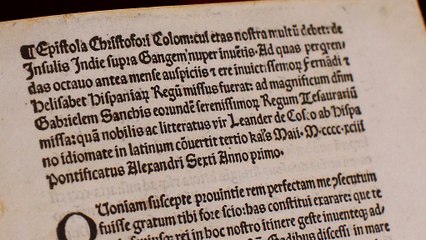 ¶Epistola Christofori Colom: cui etas nostra multū debet: de
Insulis Indie supra Gangem nuper inuētis. Ad quas perqren⸗
das octauo antea mense auspiciis ⁊ ere inuictissemoꝝ Fernādi ⁊
Helisabet Hispaniaꝝ Regū missus fuerat: ad magnificum dñm
Gabrielem Sanchis eorundē serenissimoꝝ Regum Tesaurariū
missa: quā nobilis ac litteratus vir Leander de Cosco ab Hispa
no idiomate in latinum cōuertit tertio kal's Maii. M.cccc.xciii
Pontificatus Alexandri Sexti Anno primo.
QUoniam suscepte prouintie rem perfectam me ꝯsecutum
fuisse gratum tibi fore scio: has constitui exarare: que te
rei in hoc nostro itinere geste inuenteqꝫ ad⸗
Gadibus discessi in mare